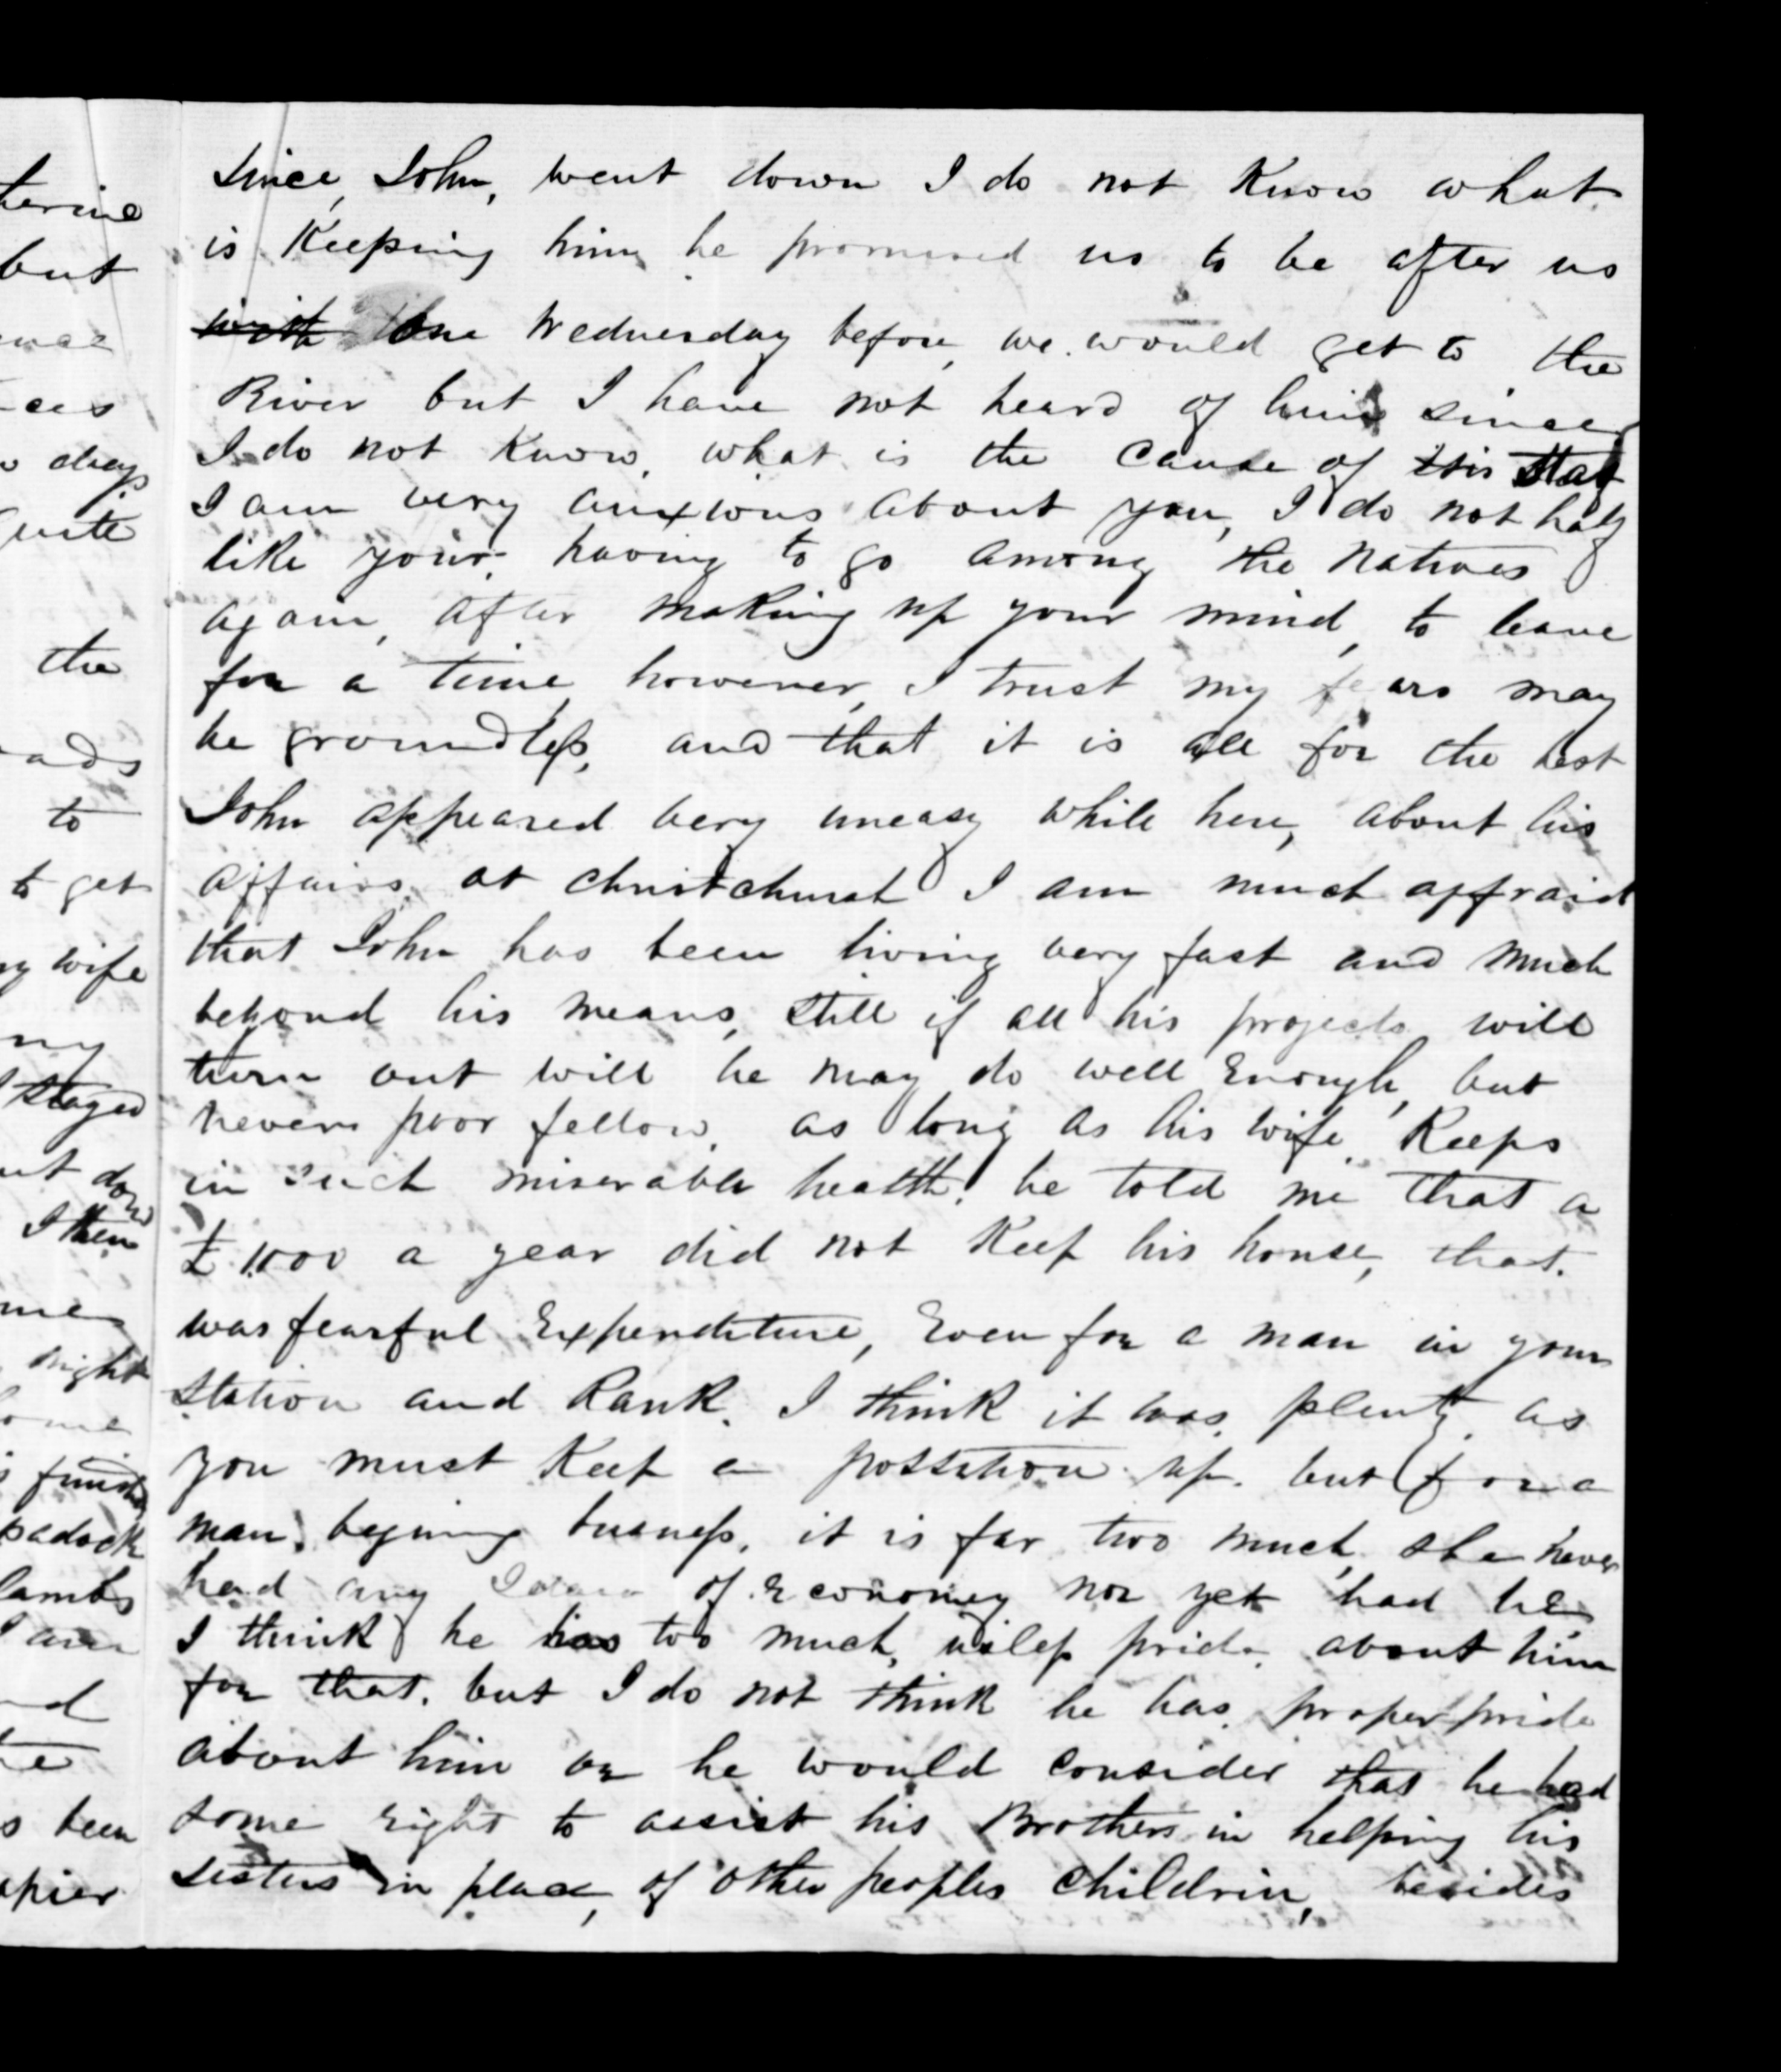 since, John, went down I do not Know what
is Keeping him he promised us to be after us
with the Wednesday before, we would get to the
River but I have not heard of him since
I do not Know, what is the Cause of this stay
I am very anxious about you, I do not half
like your having to go among the Natives
again, after making up your mind, to leave
for a time however, I trust my fears may
be groundless, and that it is all for the best
John appeared very uneasy while here, about his
affairs, at christchurch I am much affraid
that John has been living very fast and much
behond his means, still if all his projects will
turn out will he may do well Enough, but
never poor fellow, as long as his wife Keeps
in such miserable health, he told me that a
£1000 a year did not Keep his house, that.
was fearful Expenditure, Even for a man in your
station and Rank. I think it was, plenty, as
you must Keep a possation up. but for a
man, begining busness, it is far two much, she never
had any of Economey nor yet had he,
I think he has too much, usless pride, about him
for that. but I do not think he has, proper pride
about him or he would consider that he had
some right to assist his Brothers in helping his
sisters in place, of other peoples Childrin, besides
terine
but
days
quite
the
to
to get
wife
my
stayed
down
I then
night
finish
padock
lambs
I am
been
apier